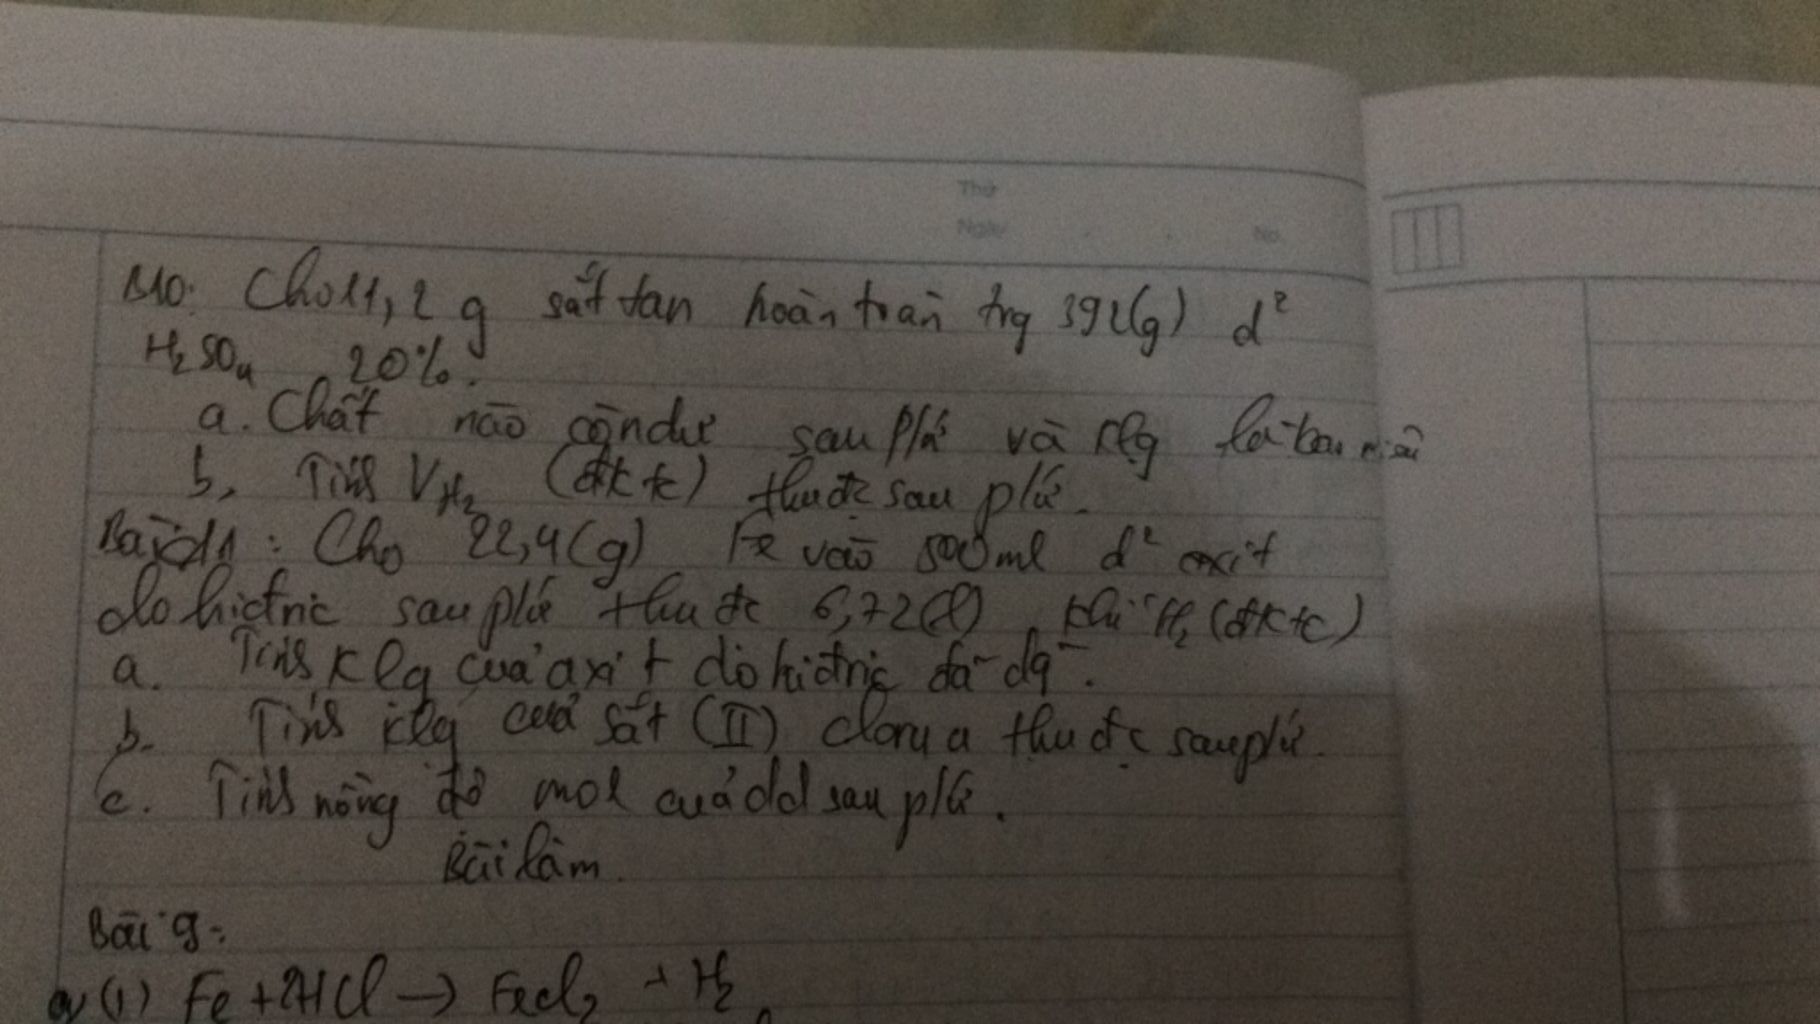 Thứ
Ngày . . No.
B10: Cho 11,2 g sắt tan hoàn toàn trg 392(g) d²
H₂SO₄ 20%.
a. Chất nào còn dư sau pứ và klg là bao nhiêu
b, Tính V H₂ (đktc) thu đc sau pứ.
Bài 11: Cho 22,4(g) Fe vào 500ml d² axit
clohiđric sau pứ thu đc 6,72(l) khí H₂ (đktc)
a. Tính klg của axit clohiđric đã dg.
b. Tính klg của sắt (II) clorua thu đc sau pứ.
c. Tính nồng độ mol của dd sau pứ.
Bài làm
Bài 9:
a, (1) Fe + 2HCl → FeCl₂ + H₂